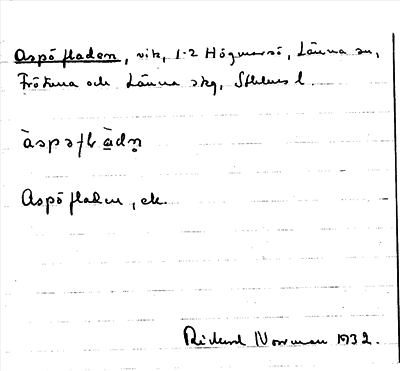 Aspöfladen, vik, 1-2 Högmarsö, Länna sn,
Frötuna och Länna skg, Sthlms l.
àspəflàdn̥
Aspöfladen, ek.
Rickard Norrman 1932.